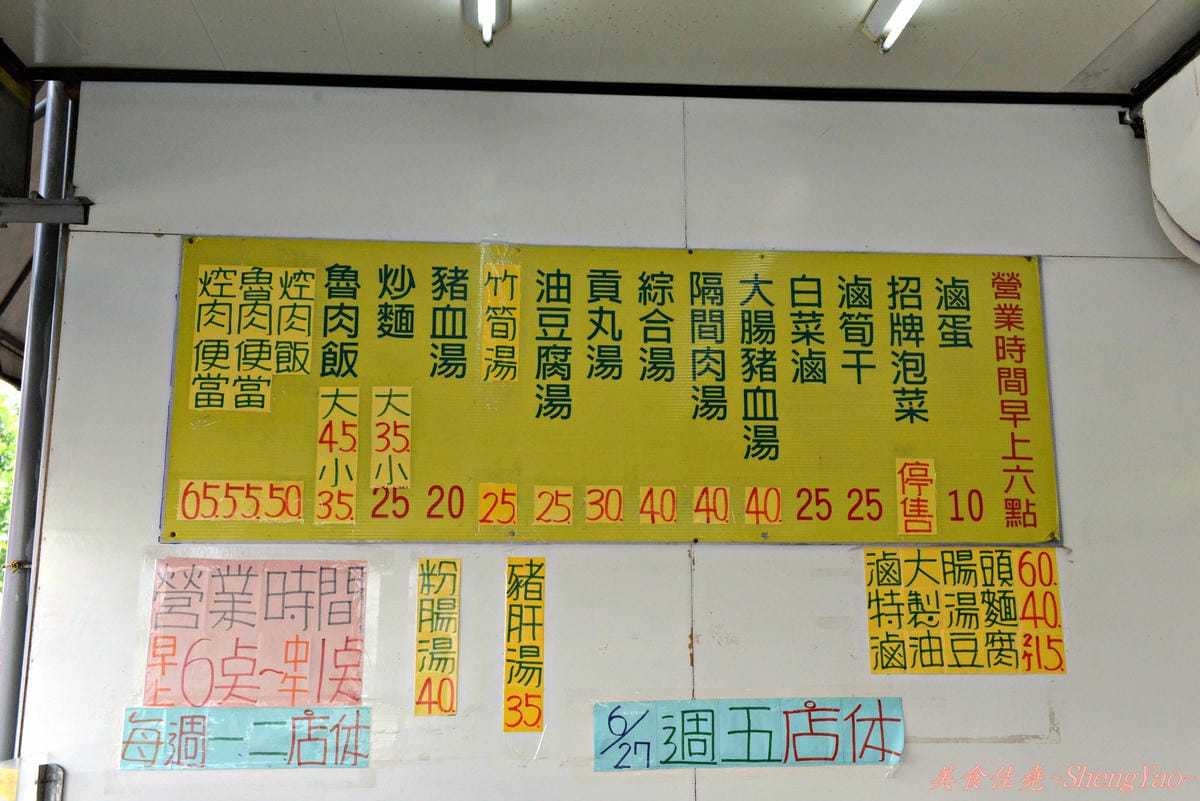 營業時間早上六點
滷蛋 10
招牌泡菜 停售
滷筍干 25
白菜滷 25
大腸豬血湯 40.
隔間肉湯 40.
綜合湯 40.
貢丸湯 30.
油豆腐湯 25.
竹筍湯 25.
豬血湯 20
炒麵 大35.小25
魯肉飯 大45.小35.
焢肉飯 50
魯肉便當 55.
焢肉便當 65
滷大腸頭60.
特製湯麵40.
滷油豆腐2ケ15.
豬肝湯35.
粉腸湯40.
營業時間
早上6点~中午1点
每週一二店休
6/27週五店休
美食佳堯~ShengYao~